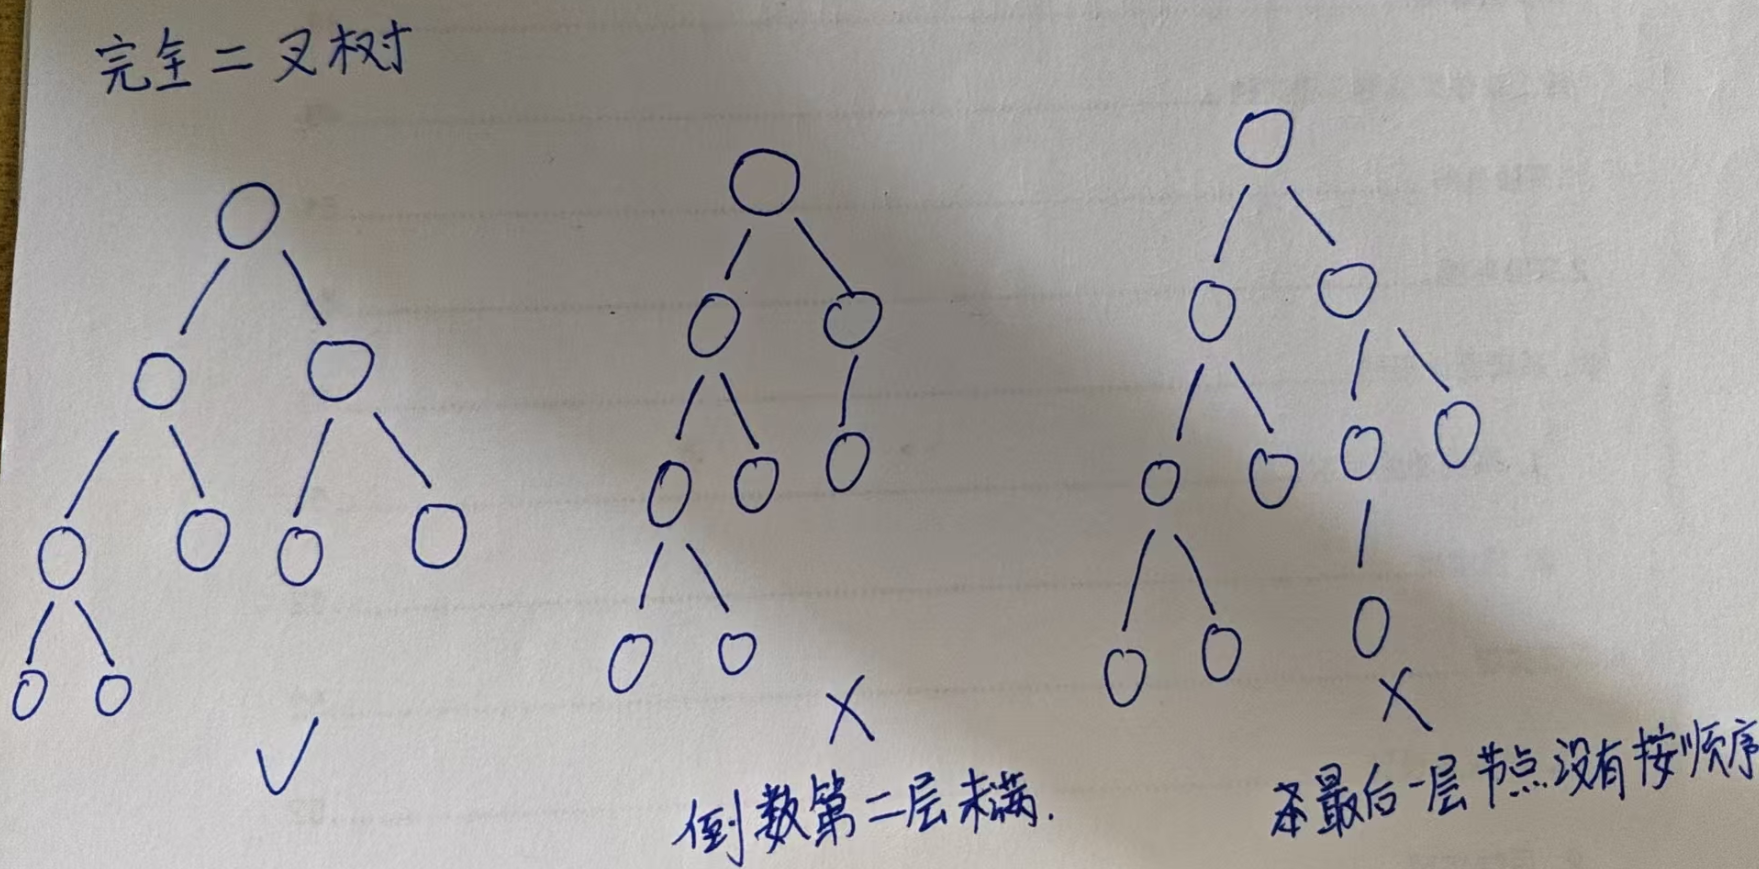 完全二叉树
倒数第二层未满.
最后一层节点没有按顺序